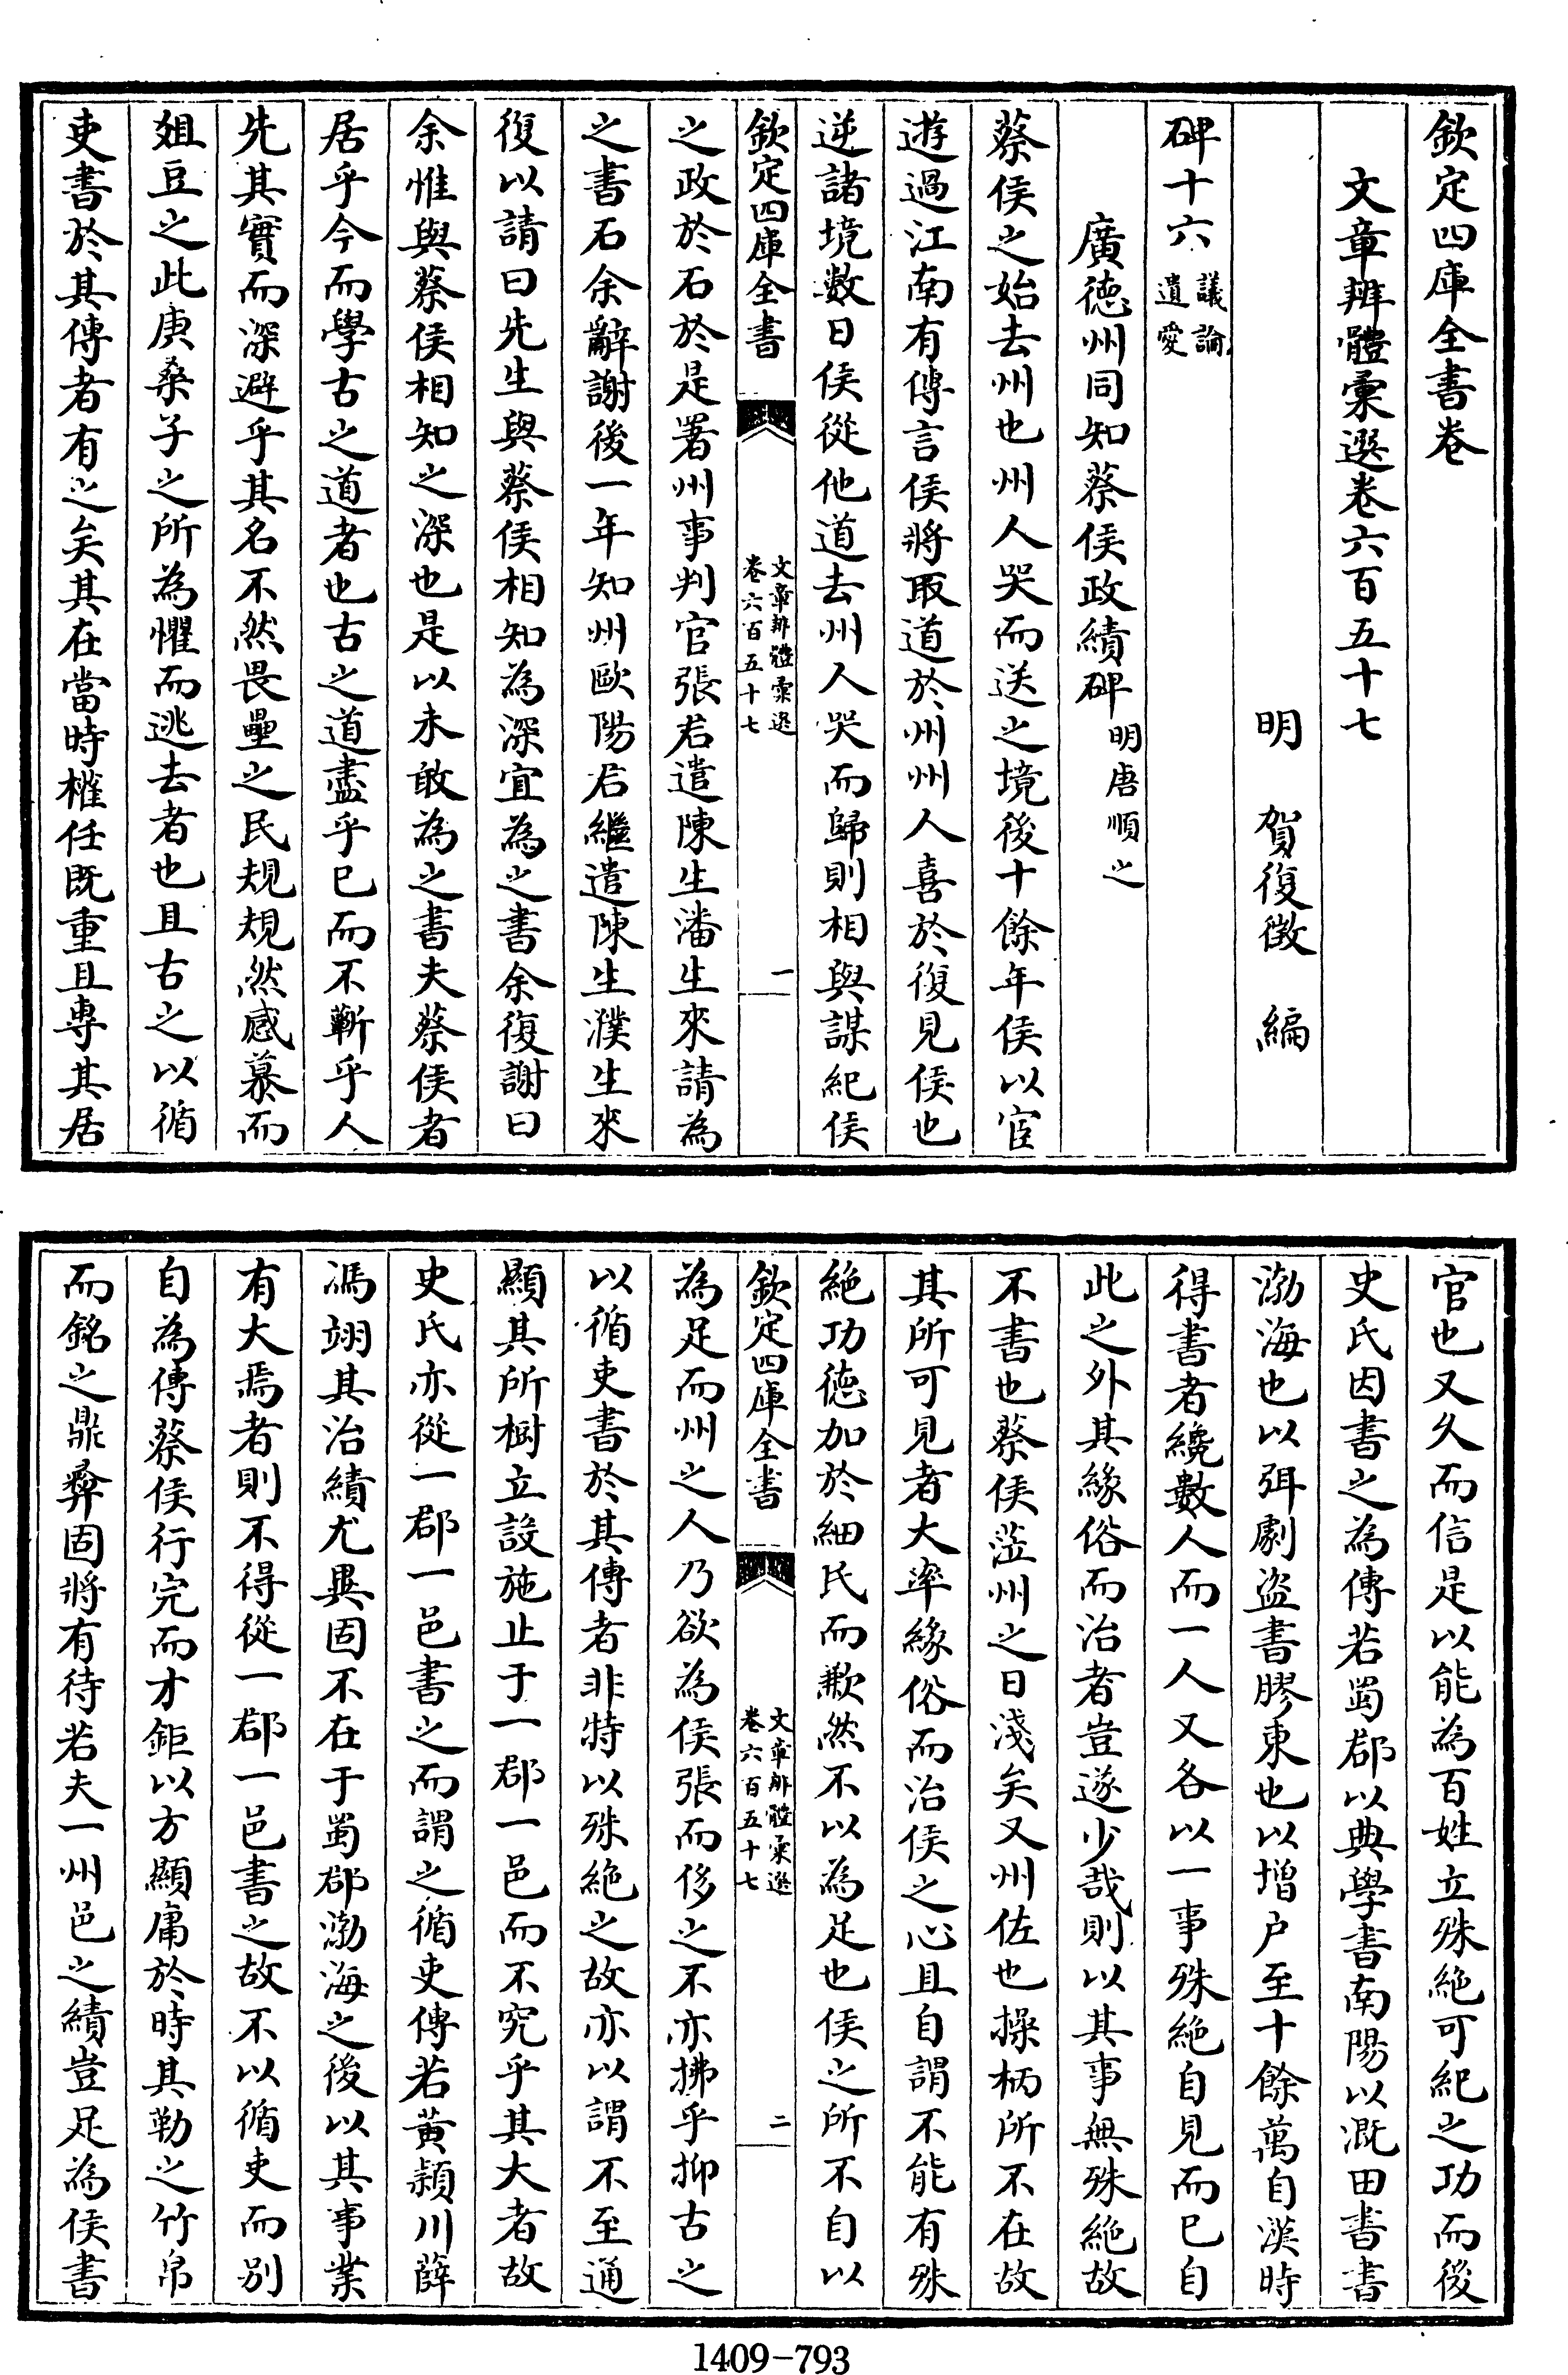 欽定四庫全書卷
文章辨體彙選卷六百五十七
明　賀復徵　編
碑十六議論遺愛
廣德州同知蔡侯政績碑明唐順之
蔡侯之始去州也州人哭而送之境後十餘年侯以宦
遊過江南有傳言侯將取道於州州人喜於復見侯也
逆諸境數日侯從他道去州人哭而歸則相與謀紀侯
欽定四庫全書
文章辨體彙選
卷六百五十七
一
之政於石於是署州事判官張君遣陳生潘生來請為
之書石余辭謝後一年知州歐陽君繼遣陳生濮生來
復以請曰先生與蔡侯相知為深宜為之書余復謝曰
余惟與蔡侯相知之深也是以未敢為之書夫蔡侯者
居乎今而學古之道者也古之道盡乎已而不蘄乎人
先其實而深避乎其名不然畏壘之民規規然感慕而
俎豆之此庚桑子之所為懼而逃去者也且古之以循
吏書於其傳者有之矣其在當時權任既重且專其居
官也又久而信是以能為百姓立殊絕可紀之功而後
史氏因書之為傳若蜀郡以典學書南陽以溉田書書
渤海也以弭劇盜書膠東也以增户至十餘萬自漢時
得書者纔數人而一人又各以一事殊絕自見而已自
此之外其緣俗而治者豈遂少哉則以其事無殊絕故
不書也蔡侯蒞州之日淺矣又州佐也操柄所不在故
其所可見者大率緣俗而治侯之心且自謂不能有殊
絕功德加於細民而歉然不以為足也侯之所不自以
欽定四庫全書
文章辨體彙選
卷六百五十七
二
為足而州之人乃欲為侯張而侈之不亦拂乎抑古之
以循吏書於其傳者非特以殊絕之故亦以謂不至通
顯其所樹立設施止于一郡一邑而不究乎其大者故
史氏亦從一郡一邑書之而謂之循吏傳若黃潁川薛
馮翊其治績尤異固不在于蜀郡渤海之後以其事業
有大焉者則不得從一郡一邑書之故不以循吏而別
自為傳蔡侯行完而才鉅以方顯庸於時其勒之竹帛
而銘之鼎彝固將有待若夫一州邑之績豈足為侯書
1409-793